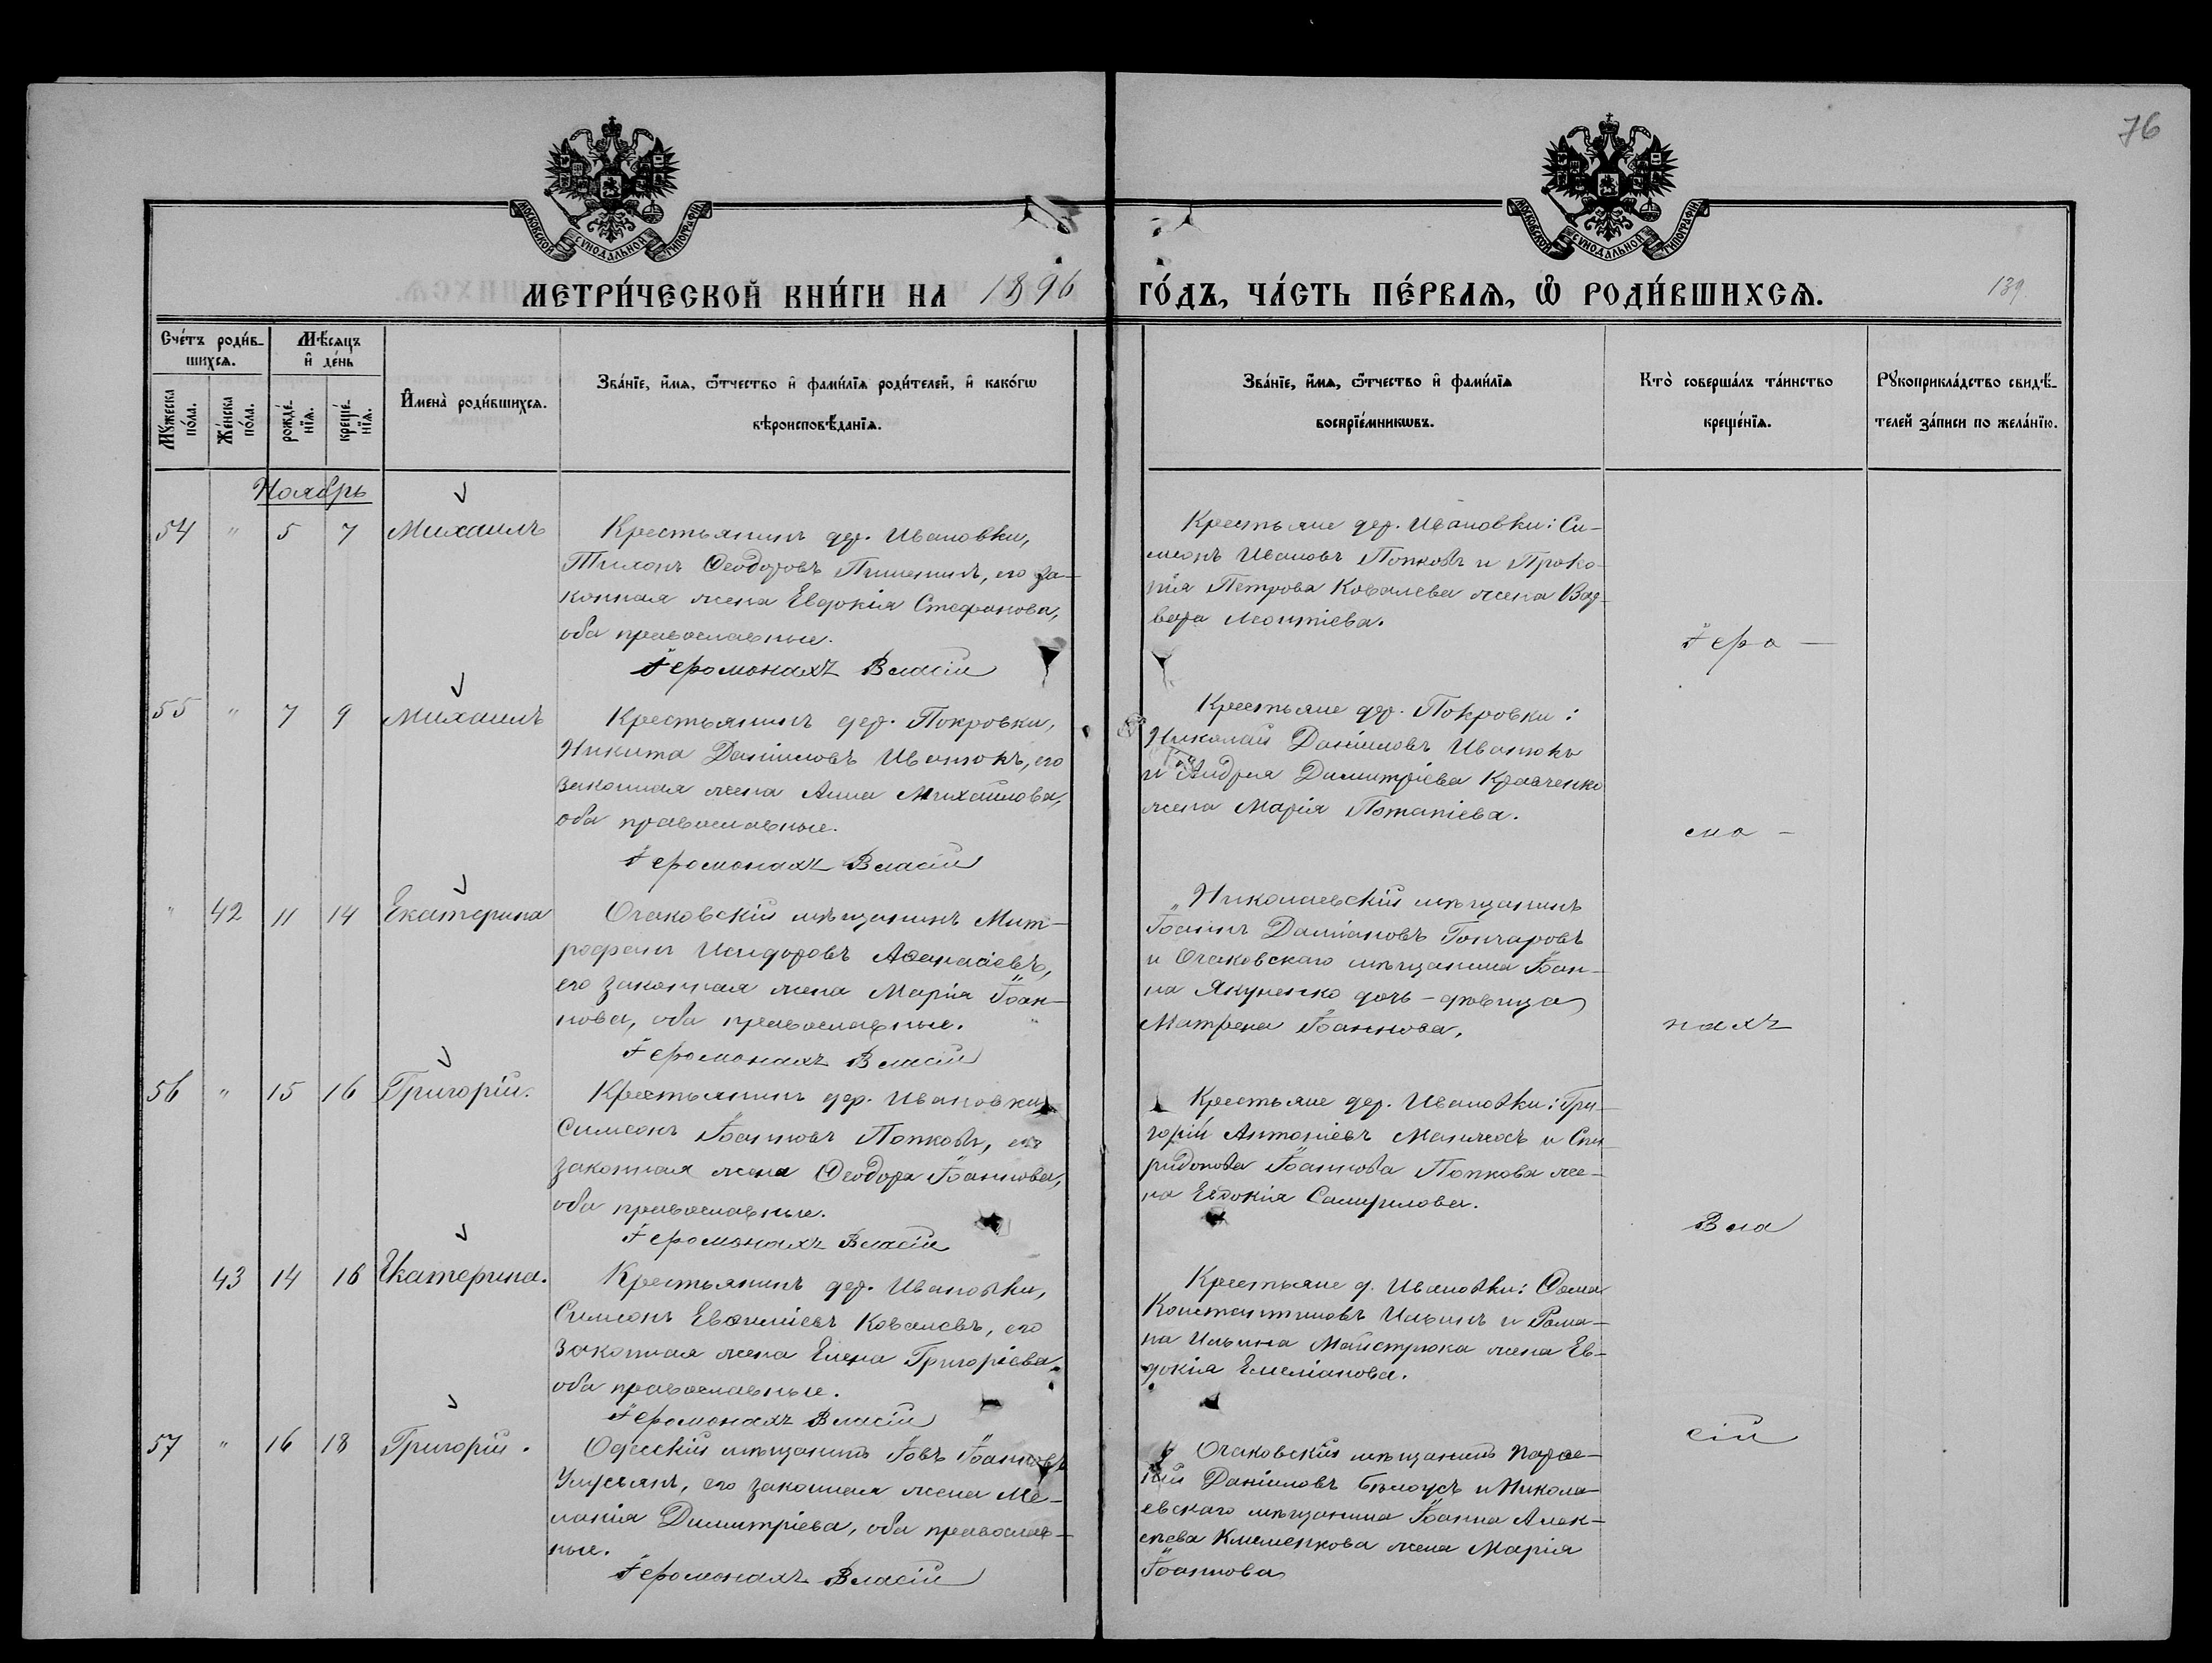 76
МОСКОВСКОЙ СѴНОДАЛЬНОЙ ТИПОГРАФІИ
МОСКОВСКОЙ СѴНОДАЛЬНОЙ ТИПОГРАФІИ
МЕТРИ́ЧЕСКОЙ КНИ́ГИ НА 1896 ГО́ДЪ, ЧА́СТЬ ПЕ́РВАѦ, Ѽ РОДИ́ВШИХСѦ.
139
Сче́тъ роди́в-
шихсѧ.
Мꙋ́жеска по́ла.
Же́нска по́ла.
Мѣ́сѧцъ
и҆ де́нь
рожде́-
нїѧ.
креще́-
нїѧ.
И҆мена̀ роди́вшихсѧ.
Зва́нїе, и҆́мѧ, ѻ҆́тчество и҆ фами́лїѧ роди́телей, и҆ како́гѡ
вѣроисповѣ́данїѧ.
Зва́нїе, и҆́мѧ, ѻ҆́тчество и҆ фами́лїѧ
воспрїе́мникѡвъ.
Кто̀ соверша́лъ та́инство
креще́нїѧ.
Рꙋкоприкла́дство свидѣ́-
телей за́писи по жела́нїю.
Ноябрь
54 " 5 7 Михаилъ
Крестьянинъ дер. Ивановки,
Тихонъ Ѳеодоровъ Пишенинъ, его за-
конная жена Евдокія Стефанова,
оба православные.
Іеромонахъ Власій
Крестьяне дер. Ивановки: Си-
меонъ Ивановъ Попковъ и Проко-
пія Петрова Ковалева жена Вар-
вара Леонтіева.
Іеро-
55 " 7 9 Михаилъ
Крестьянинъ дер. Покровки,
Никита Даніиловъ Иванюкъ, его
законная жена Анна Михайлова,
оба православные.
Іеромонахъ Власій
Крестьяне дер. Покровки:
Николай Даніиловъ Иванюкъ
и Андрея Димитріева Кравченко
жена Марія Потапіева.
мо-
" 42 11 14 Екатерина
Очаковскій мѣщанинъ Мит-
рофанъ Исидоровъ Аѳанасіевъ,
его законная жена Марія Іоан-
нова, оба православные.
Іеромонахъ Власій
Николаевскій мѣщанинъ
Іоаннъ Даміановъ Гончаровъ
и Очаковскаго мѣщанина Іоан-
на Якуненко дочь-дѣвица
Матрена Іоаннова.
нахъ
56 " 15 16 Григорій.
Крестьянинъ дер. Ивановки,
Симеонъ Іоанновъ Попковъ, его
законная жена Ѳеодора Іоаннова,
оба православные.
Іеромонахъ Власій
Крестьяне дер. Ивановки: Гри-
горій Антоніевъ и Спи-
ридонова Іоаннова Попкова же-
на Евдокія Самуилова.
Вла
43 14 16 Екатерина.
Крестьянинъ дер. Ивановки,
Симеонъ Евѳиміевъ Ковалевъ, его
законная жена Елена Григоріева
оба православные.
Іеромонахъ Власій
Крестьяне д. Ивановки: Ѳома
Константиновъ Ильинъ и Рома-
на Ильина Майстрюка жена Ев-
докія Емеліанова.
сій
57 " 16 18 Григорій.
Одесскій мѣщанинъ Іовъ Іоанновъ
его законная жена Ме-
ланія Димитріева, оба православ-
ные.
Іеромонахъ Власій
Очаковскій мѣщанинъ
Даніиловъ Бѣлоусъ и Никола-
евскаго мѣщанина Іоанна Алек-
сѣева Клименкова жена Марія
Іоаннова